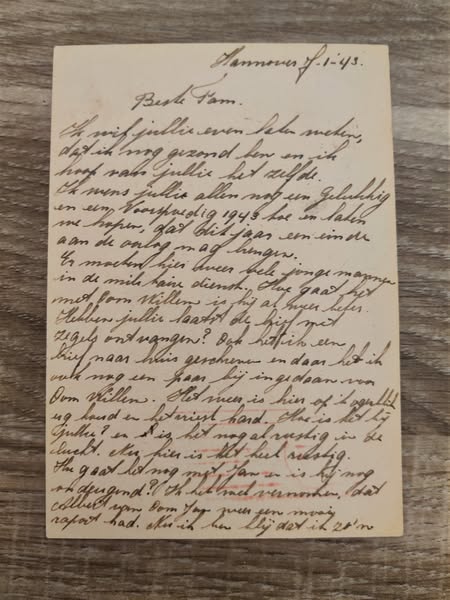 Hannover 7-1-43.
Beste Fam.
Ik wil jullie even laten weten,
dat ik nog gezond ben en ik
hoop van jullie het zelfde.
Ik wens jullie allen nog een Gelukkig
en een Voorspoedig 1943 toe en laten
we hopen, dat dit jaar een einde
aan de oorlog mag brengen.
Er moeten hier weer vele jonge mannen
in de militaire dienst. Hoe gaat het
met Oom Willem is hij al weer beter.
Hebben jullie laatst de brief met
zegels ontvangen? Ook heb ik een
brief naar huis geschreven en daar heb ik
ook nog een paar bij ingedaan voor
Oom Willem. Het weer is hier op 't ogenblik
koud en het vriest hard. Hoe is het bij
jullie? en is het nogal rustig in de
lucht. Nu hier is het heel rustig.
Hoe gaat het nog met Jan en is hij nog
ondeugend? Ik heb wel vernomen, dat
van Oom Jan weer een mooi
raport had. Nu ik ben blij dat ik zo'n